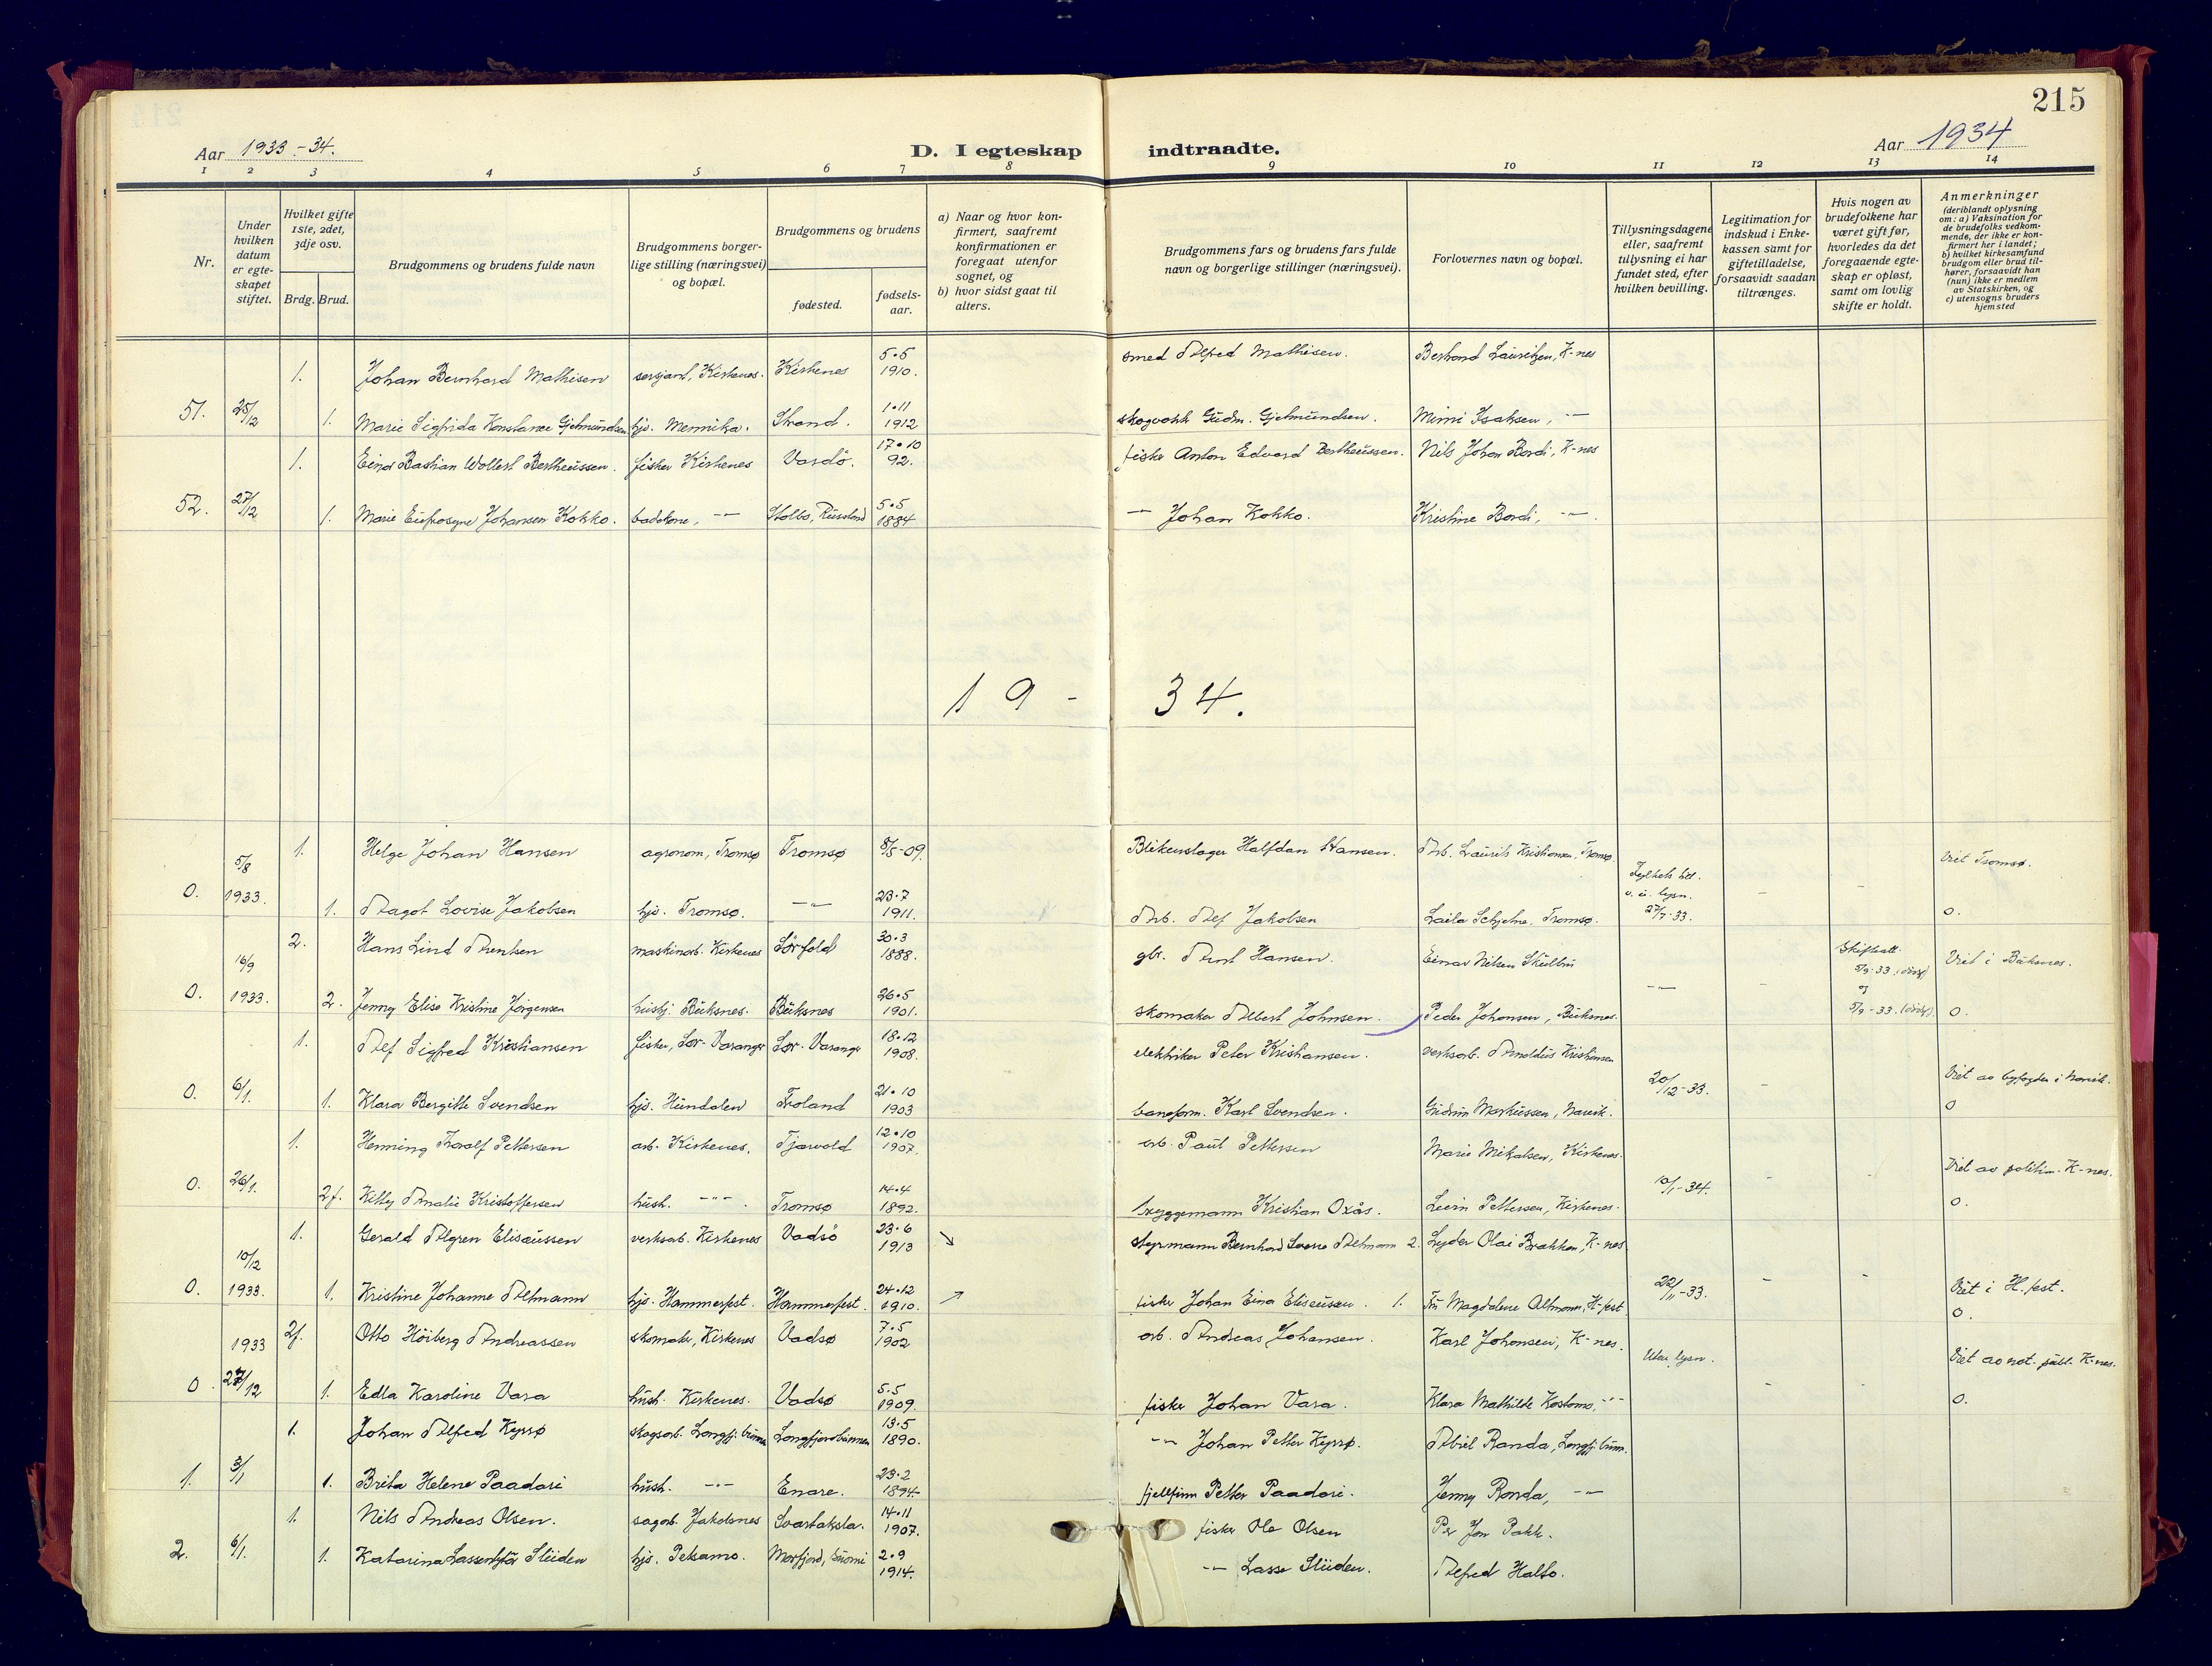 215
Aar 1933-34.
D. I egteskap indtraadte.
Aar 1934
1 2 3 4 5 6 7 8 9 10 11 12 13 14
Nr.
Under hvilken datum er egteskapet stiftet.
Hvilket gifte 1ste, 2det, 3dje osv.
Brdg. Brud.
Brudgommens og brudens fulde navn
Brudgommens borgerlige stilling (næringsvei) og bopæl.
Brudgommens og brudens
fødested.
fødselsaar.
a) Naar og hvor konfirmert, saafremt konfirmationen er foregaat utenfor sognet, og
b) hvor sidst gaat til alters.
Brudgommens fars og brudens fars fulde navn og borgerlige stillinger (næringsvei).
Forlovernes navn og bopæl.
Tillysningsdagene eller, saafremt tillysning ei har fundet sted, efter hvilken bevilling.
Legitimation for indskud i Enkekassen samt for giftetilladelse, forsaavidt saadan tiltrænges.
Hvis nogen av brudefolkene har været gift før, hvorledes da det foregaaende egteskap er opløst, samt om lovlig skifte er holdt.
Anmerkninger
(deriblandt oplysning om: a) Vaksination for de brudefolks vedkommende, der ikke er konfirmert her i landet; b) hvilket kirkesamfund brudgom eller brud tilhører, forsaavidt han (hun) ikke er medlem av Statskirken, og c) utensogns bruders hjemsted
1. Johan Bernhard Mathisen sersjant, Kirkenes. Kirkenes 5.5 1910. smed Alfred Mathisen. Lauritzen, K-nes
51. 25/12 1. Marie Sigfrida Konstance Gjetmundsen hjv. Mennika. Strand. 1.11 1912 Gudm. Gjetmundsen. Mimi Isaksen, -"-
1. Einar Bastian Wollert Bertheussen. fisker Kirkenes Vardö. 17.10 92. fisker Anton Edvard Bertheussen. Nils Johan Bordi, K-nes
52. 27/12 1. Marie Eufrosyne Johansen Kokko. badekone, -"- Stolbo, Russland 5.5 1884 -"- Johan Kokko. Kristine Bordi, -"-.
19-34.
1. Helge Johan Hansen agronom, Tromsø Tromsø 8/5-09. Blikenslager Halfdan Hansen. Arb. Laurits Kristiansen, Tromsø. Viet Tromsø.
0. 5/8 1933. 1. Dagot Lovise Jakobsen hjv. Tromsø. -"- 23.7 1911. Arb. Alf Jakobsen Laila Schjelne, Tromsø. 27/7-33. - - 0.
2. Hans Lind Arentsen maskinarb. Kirkenes Sörfold 30.3 1888. gbr. Arnt Hansen. Einar Nilsen Skullbu Skifteatt. 5/9-33. Viet i Buksnes.
0. 16/9 1933. 2. Jenny Elise Kristine Jörgensen hushj. Buksnes. Buksnes 26.5 1901. skomaker Albert Johnsen. Peder Johansen, Buksnes. -"- - og 5/9-33. 0.
1. Alf Sigfred Kristiansen fisker, Sør-Varanger Sør-Varanger 18.12 1908. elektriker Peter Kristiansen. verksarb. Arnoldus Kristiansen
0. 6/1. 1. Klara Bergitte Svendsen hjv. Hundalen Froland 21.10 1903 baneform. Karl Svendsen. Gudrun Markussen, Narvik. 20/12-33. - Viet av byfogden i Narvik. 0
1. Henning Thoralf Pettersen arb. Kirkenes. Tjørvold 12.10 1907. arb. Paul Pettersen Marie Mikalsen, Kirkenes.
0. 26/1. 2f. Kitty Amalie Kristoffersen hush. -"- Tromsø 14.4 1892. bryggemann Kristian Oxås. Pettersen, Kirkenes. 10/1-34. - - Viet av politim. K-nes. 0.
1. Gerald Algren Eliseussen verksarb. Kirkenes Vadsö 23.6 1913 styrmann Bernhard Sverre Altmann 2. Lyder Olai Brakken, K-nes
0. 10/12 1933. 1. Kristine Johanne Altmann hjv. Hammerfest. Hammerfest. 24.12 1910. fisker Johan Einar Eliseussen. 1. Fru Magdalene Altmann, H-fest. 22/11-33. - - Viet i H.fest. 0.
2f. Otto Höiberg Andreassen skomaker, Kirkenes Vadsø 7.5 1902 arb. Andreas Johansen. Karl Johansen, K-nes. Uten lysn. Viet av not. publ. K-nes.
0. 1933 27/12 1. Edla Karoline Vara hush. Kirkenes. Vadsø 5.5 1909. fisker Johan Vara. Klara Mathilde Kostamo, -"- - - 0.
1. Johan Alfred Kyrrø skogsarb. Langfj.bunnen Langfjordbunnen 13.5 1890. -"- Johan Petter Kyrrø. Abiel Randa, Langfj.bunn.
1. 3/1 1. Brita Helene Paadari hush. -"- Enare. 23.2 1894. fjellfinn Petter Paadari. Jenny Randa, -"-
1. Nils Andreas Olsen. sagarb. Jakobsnes Svartaksla. 14.11 1907. fisker Ole Olsen Per Jon Pakk.
2. 6/1. 1. Katarina Lassentytär Sliiden hjv. Petsamo. Morfjord, Suomi 2.9 1914. -"- Lasse Sliiden. Alfred Halto.